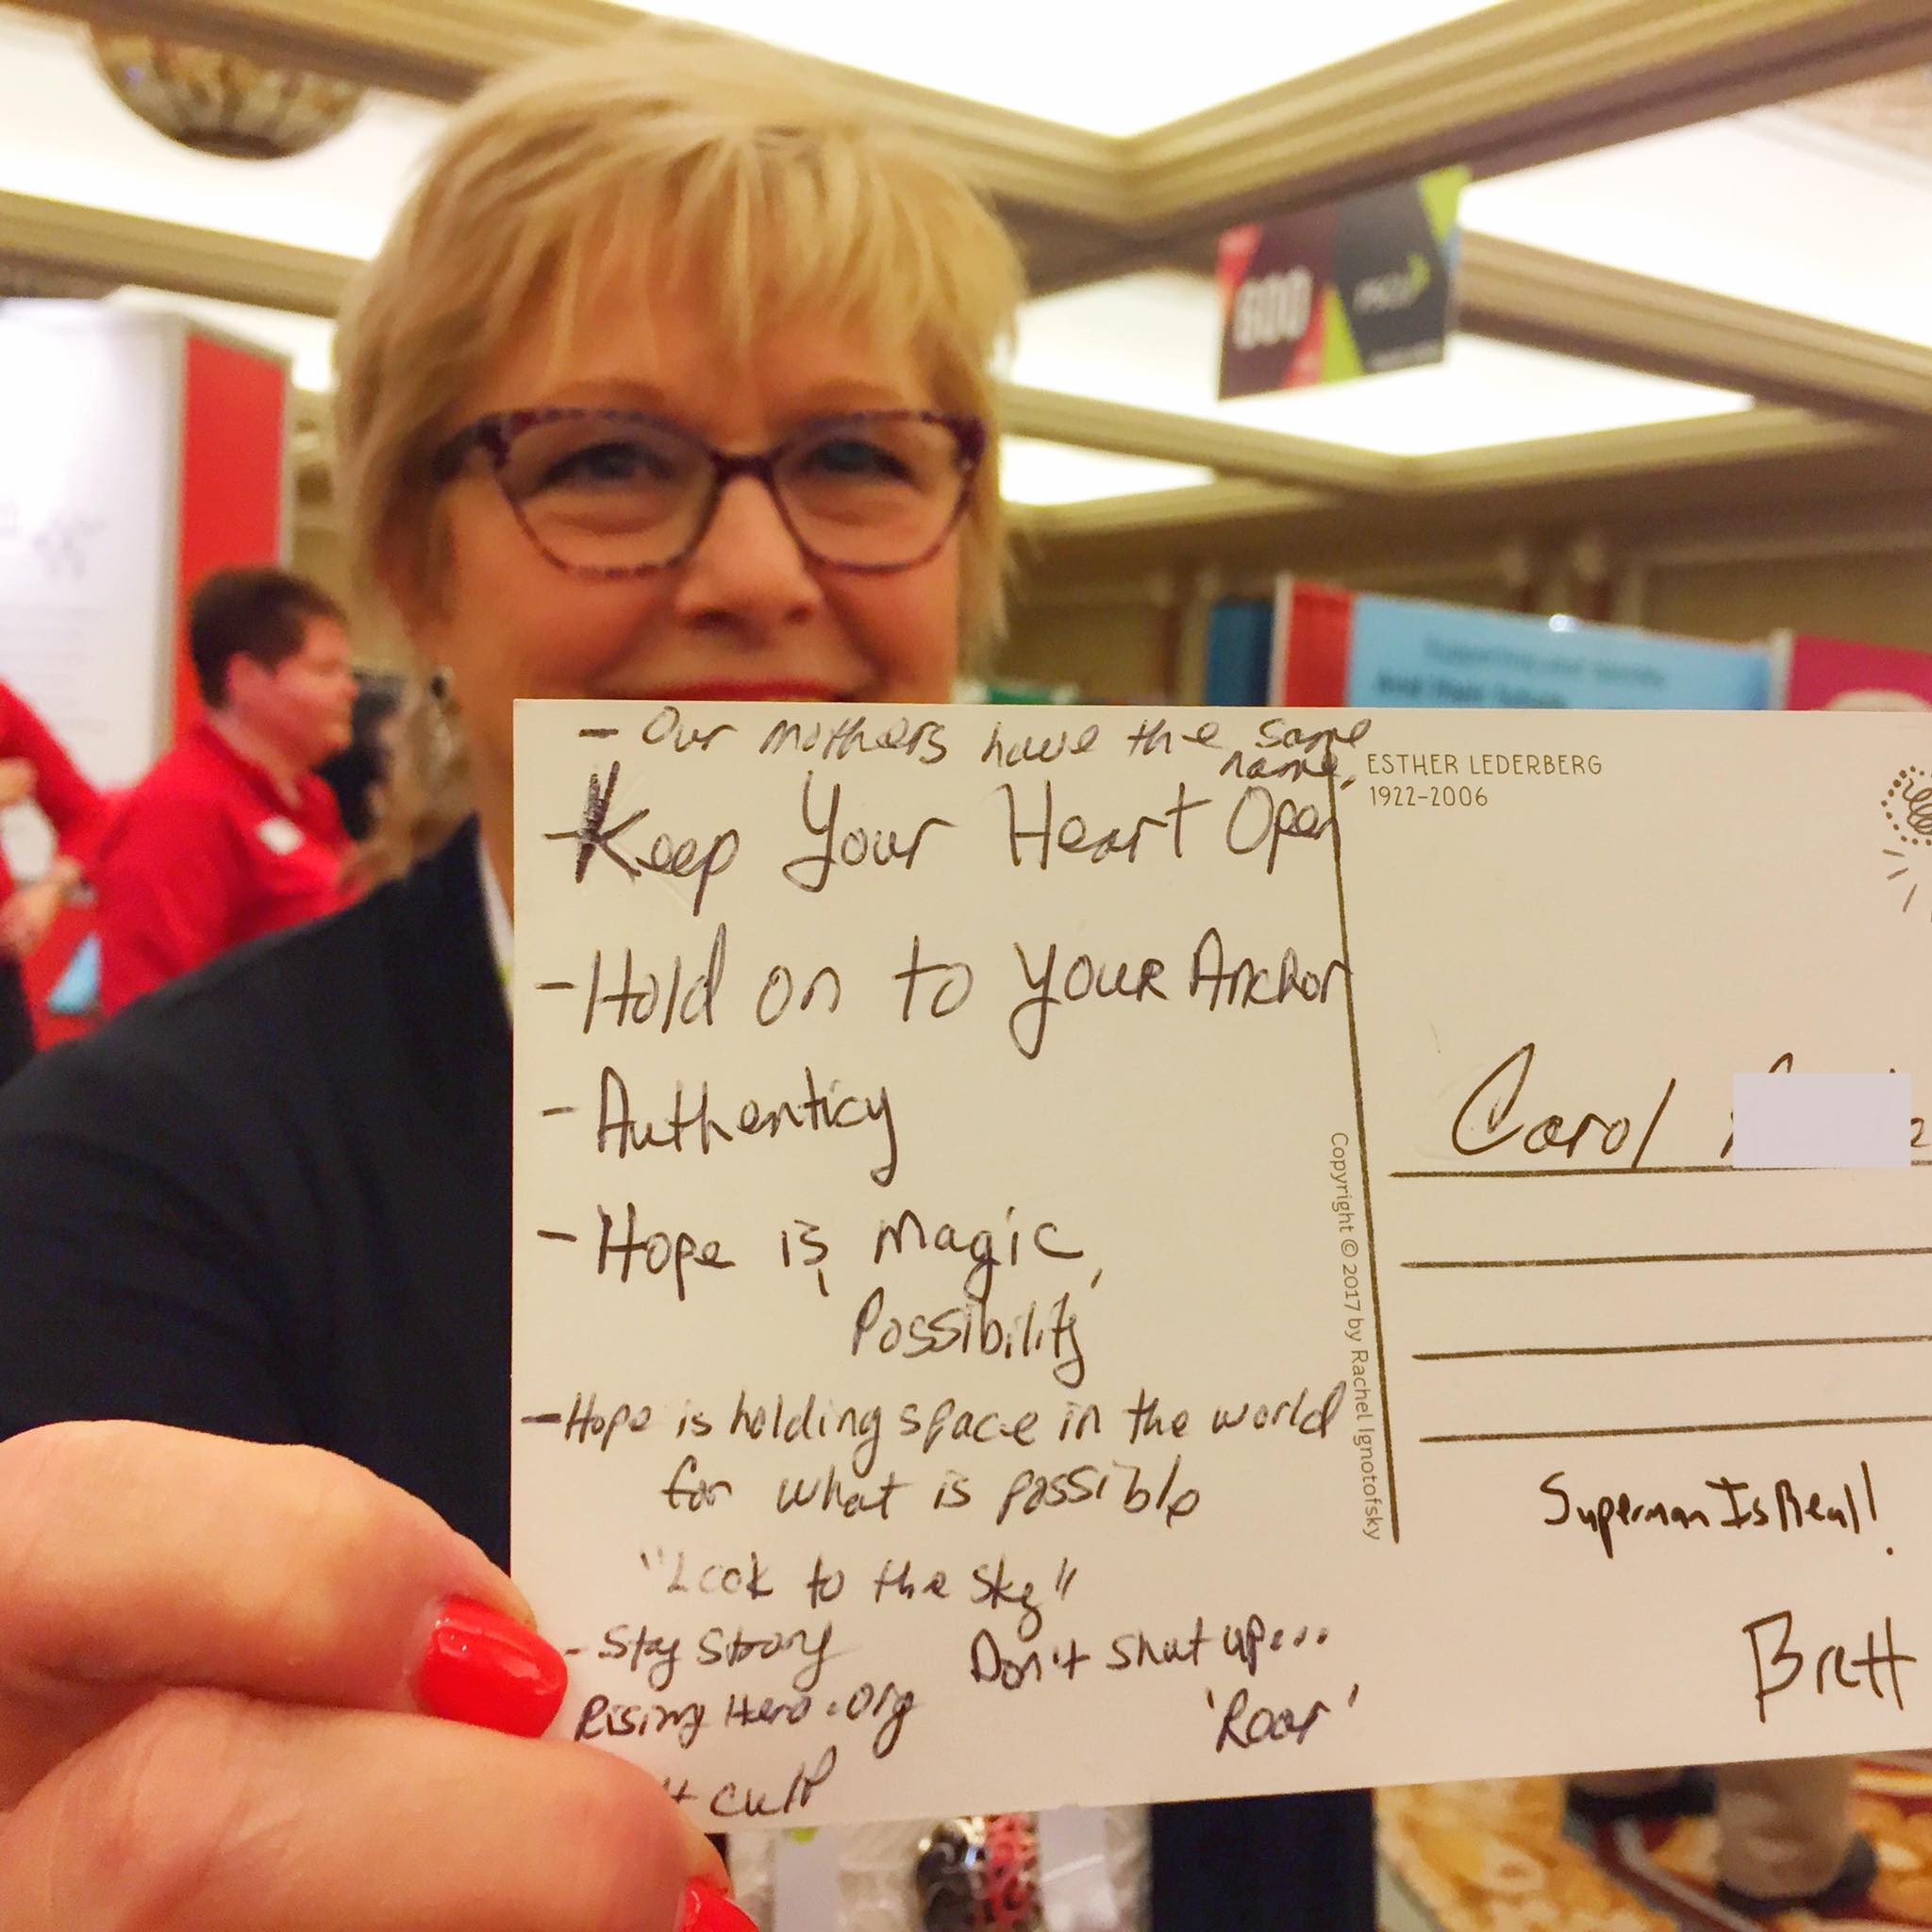 - Our mothers have the same
name,
- Keep Your Heart Open
- Hold on to YOUR Anchor
- Authenticy
- Hope is magic,
Possibility
- Hope is holding space in the world
for what is possible
"Look to the sky"
- Stay Strong
Rising Hero.org
Don't shut up...
'Roar'
cull
ESTHER LEDERBERG
1922-2006
Copyright © 2017 by Rachel Ignotofsky
Carol
Superman Is Real!
Brett
600